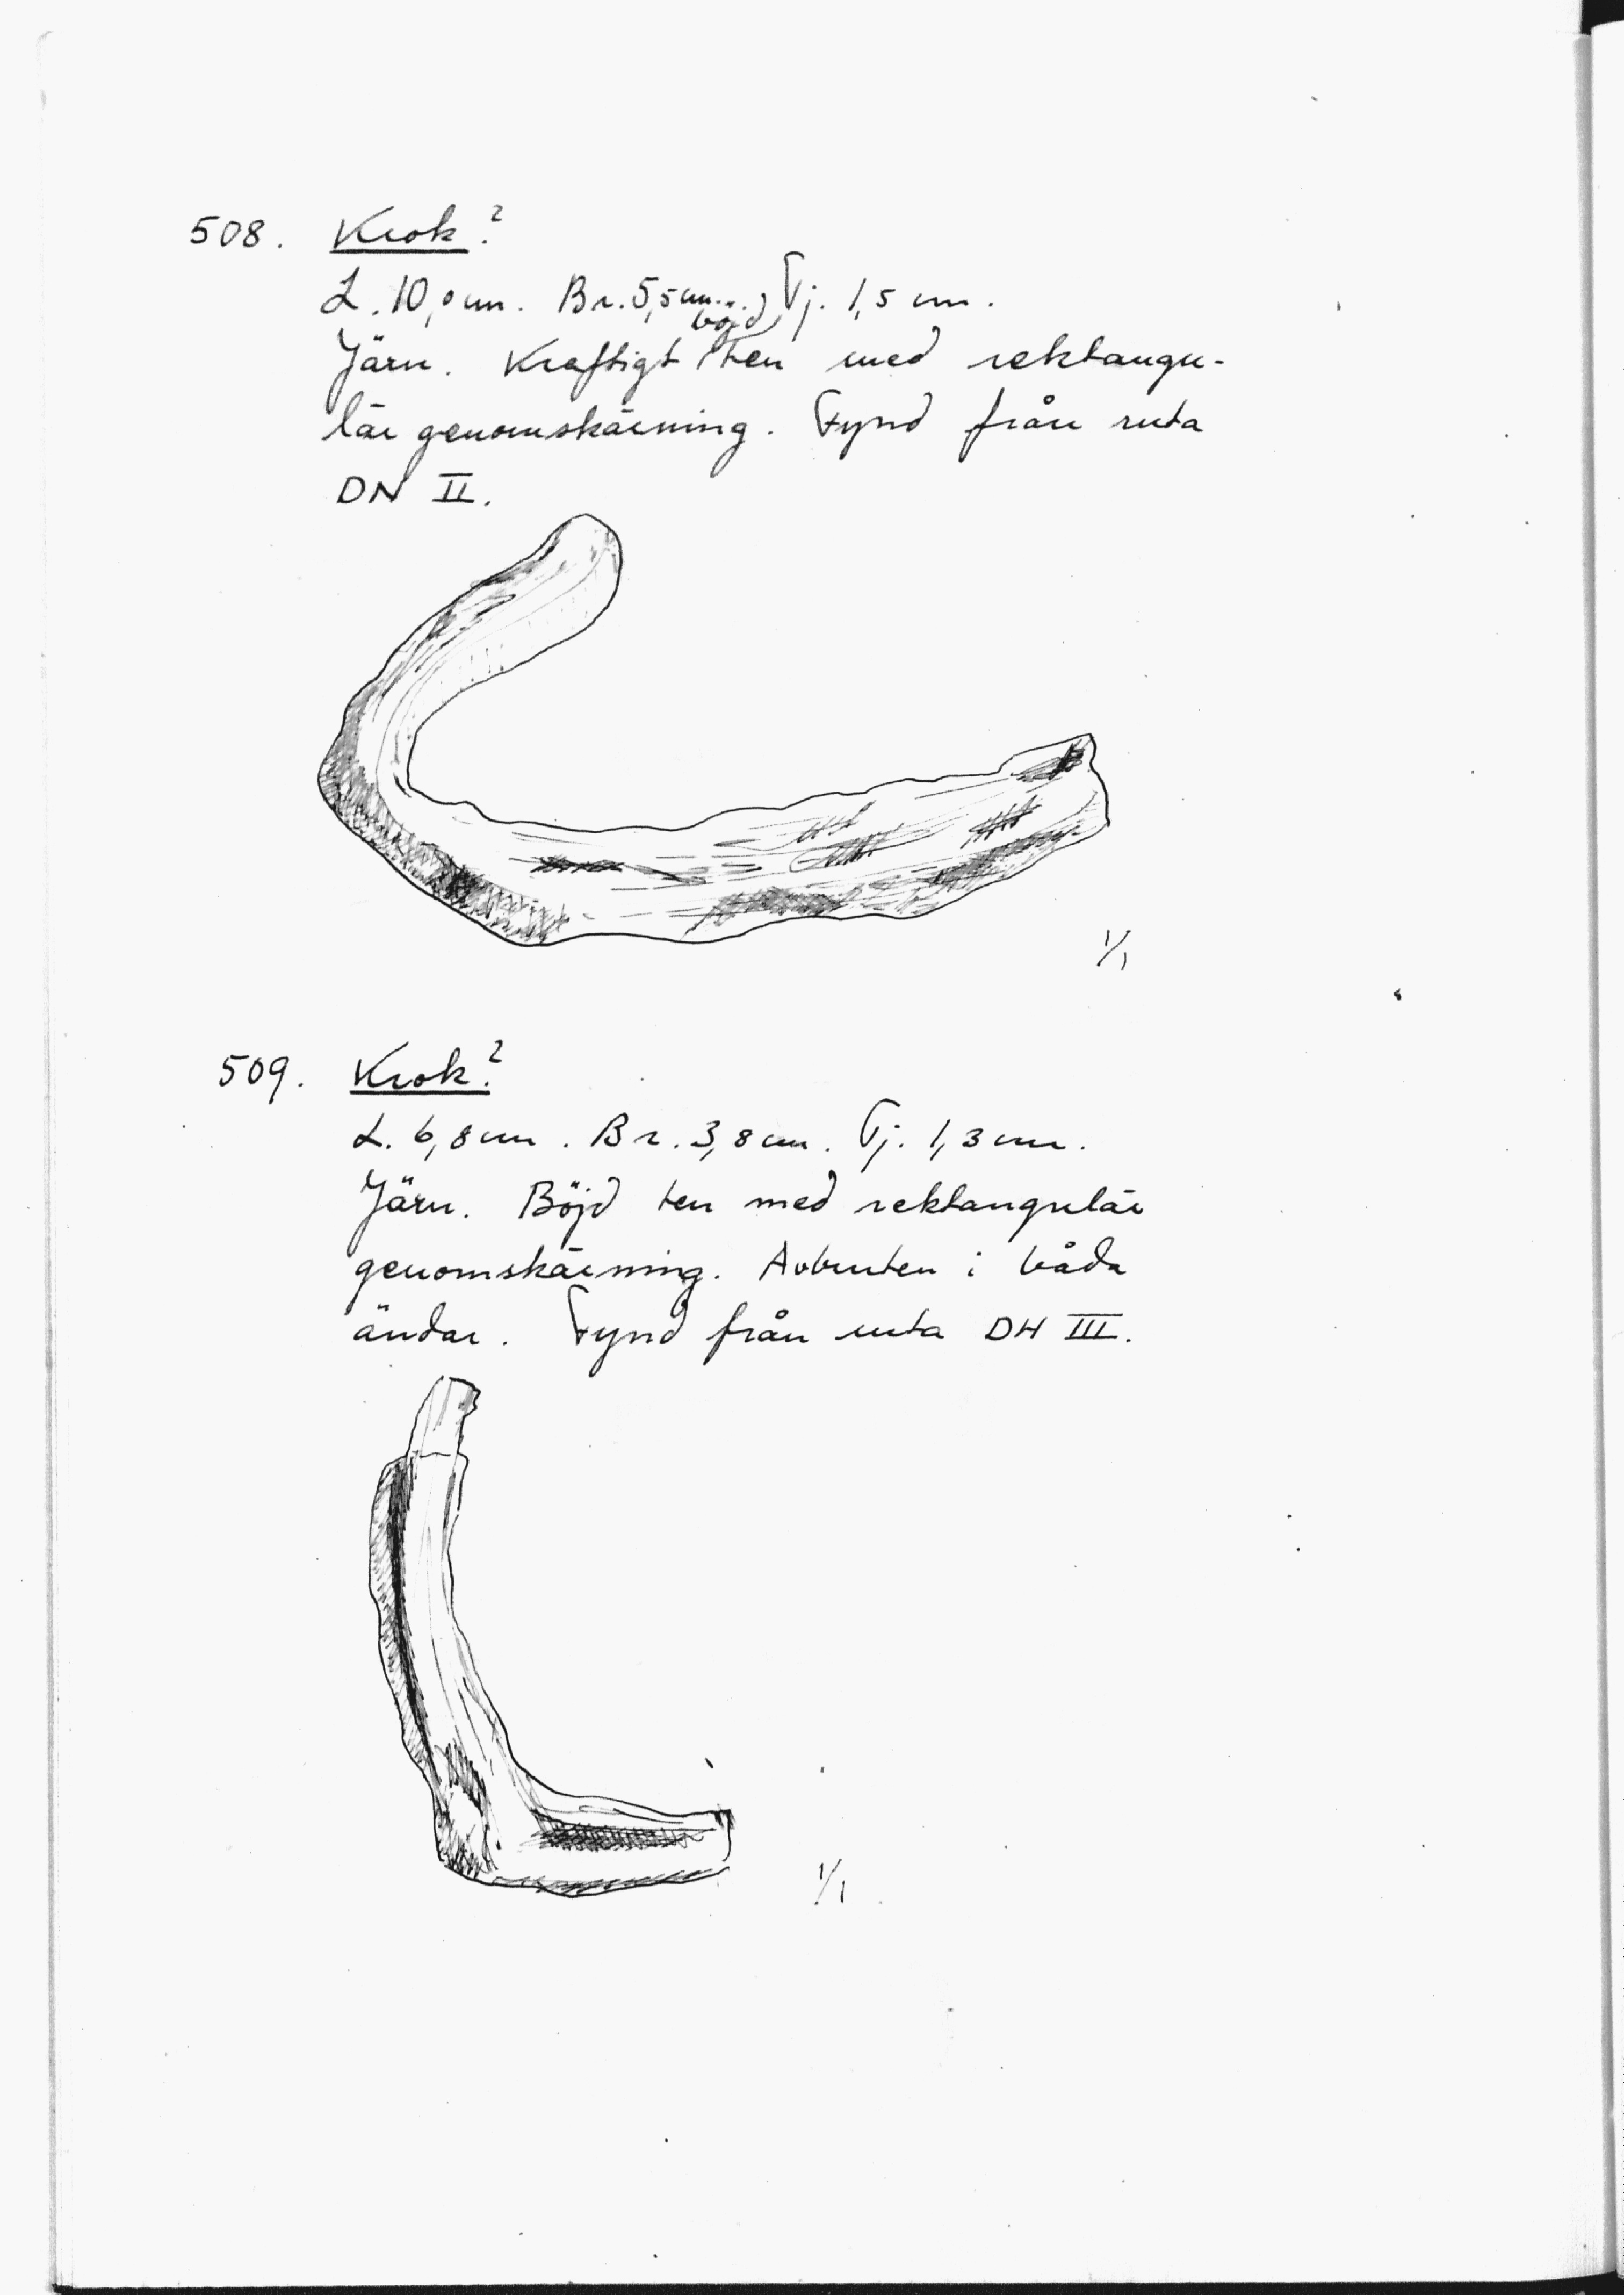 508. Krok?
L. 10,0 cm. Br. 5,5 cm. Tj. 1,5 cm.
Järn. Kraftigt böjd ten med rektangu-
lär genomskärning. Fynd från ruta
DN II.
1/1
509. Krok?
L. 6,8 cm. Br. 3,8 cm. Tj. 1,3 cm.
Järn. Böjd ten med rektangulär
genomskärning. Avbruten i båda
ändar. Fynd från ruta DH III.
1/1